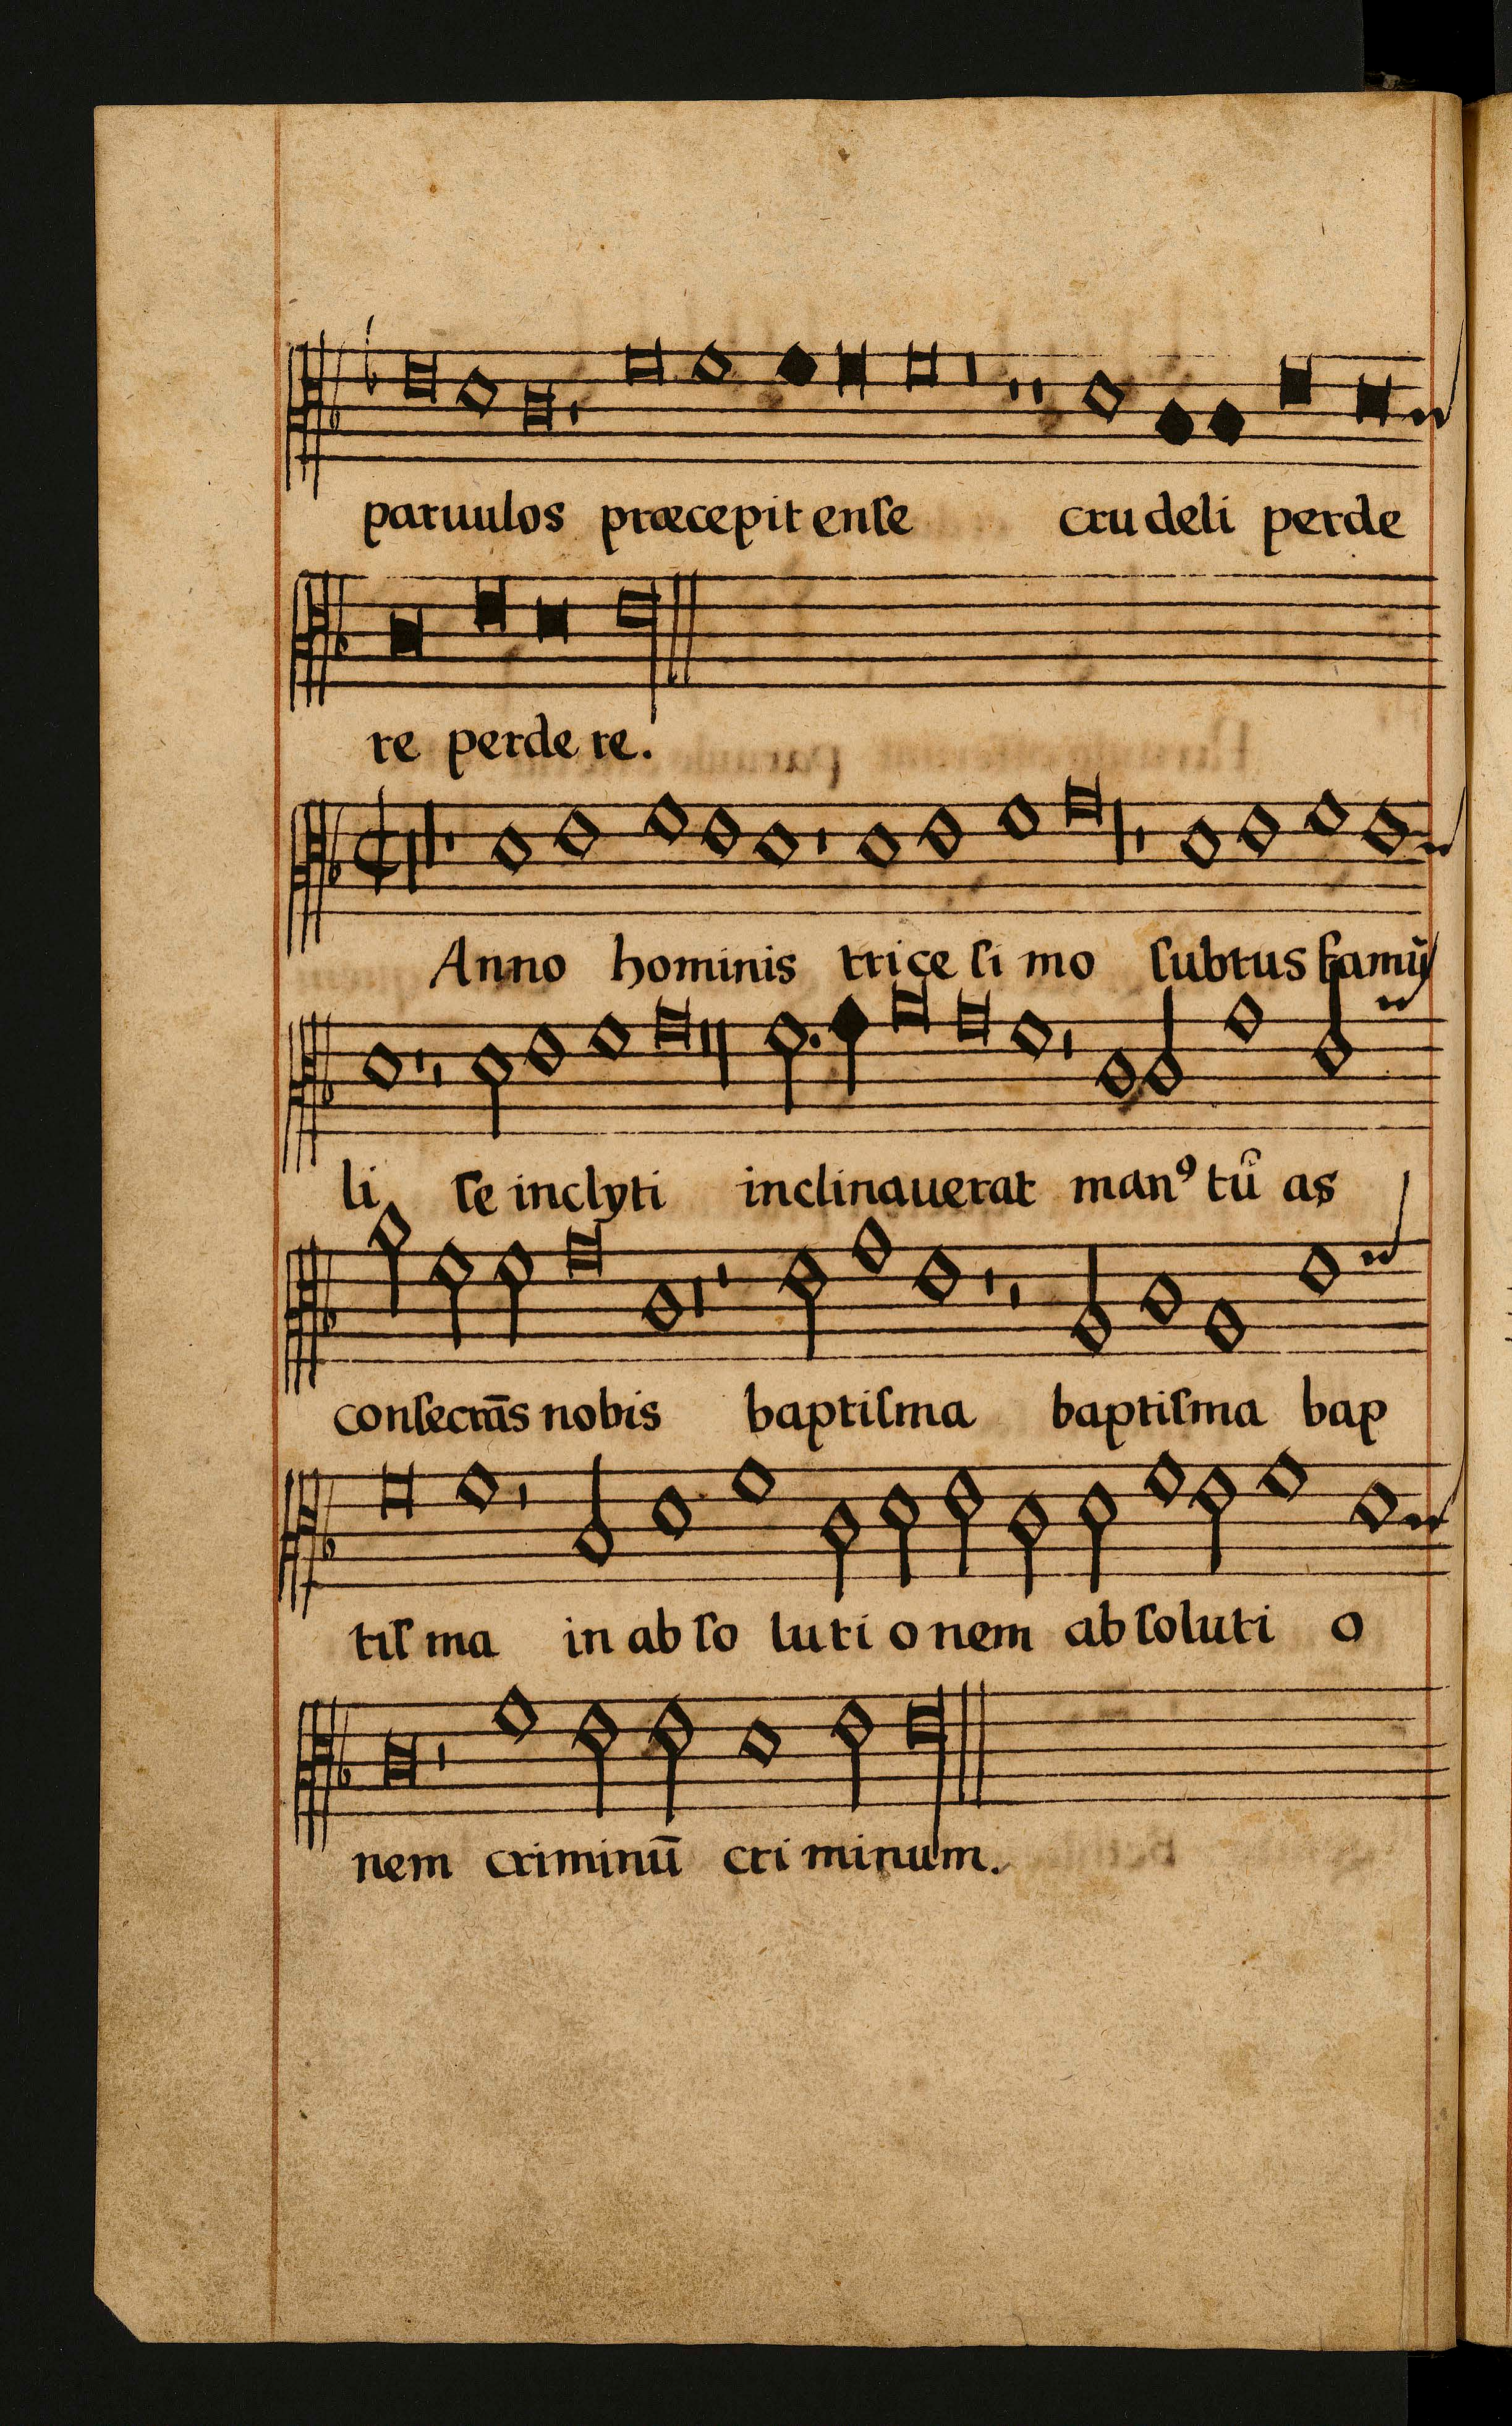 paruulos præcepit enſe crudeli perde
re perdere.
Anno hominis triceſimo ſubtus famũ
li ſe inclyti inclinauerat manꝰ tũ as
conſecrãs nobis baptiſma baptiſma bap
tiſma in abſolutionem abſolutio
nem criminũ criminum.